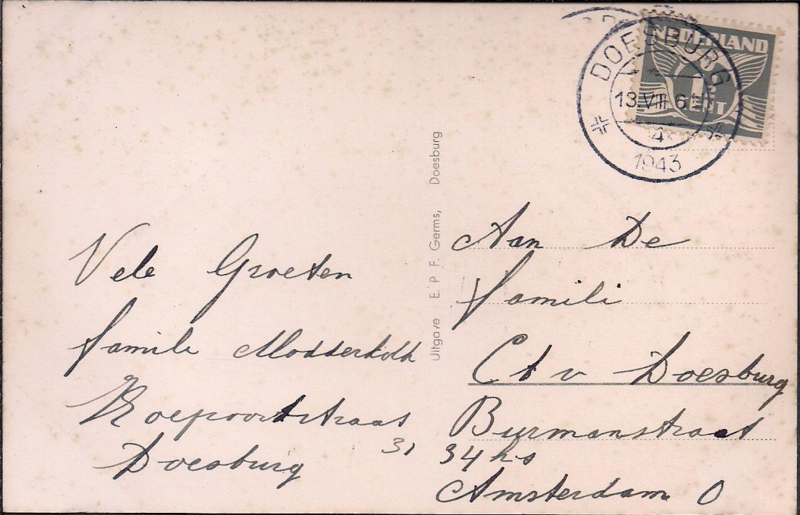 DOESBURG
13.VIII 6
4
1943
NEDERLAND
1½
CENT
Uitgave E. P. F. Germs, Doesburg
Vele Groeten
familie Modderkolk
Koepoortstraat
31
Doesburg
Aan De
familie
Ct v Doesburg
Burmanstraat
34 hs
Amsterdam O